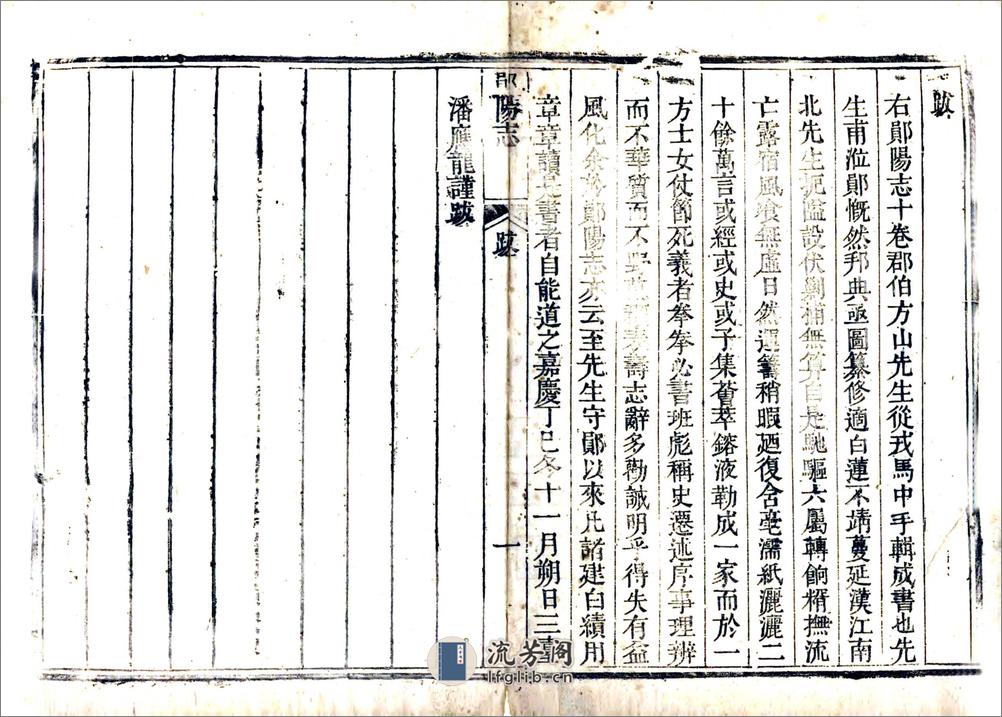 跋
右鄖陽志十卷郡伯方山先生從戎馬中手輯成書也先
生甫涖鄖慨然邦典亟圖纂修適白蓮不靖蔓延漢江南
北先生扼隘設伏剿捕無算自是馳驅六屬轉餉糈撫流
亡露宿風飱無虛日然運籌稍暇廼復含毫濡紙灑灑二
十餘萬言或經或史或子集薈萃鎔液勒成一家而於一
方士女仗節死義者拳拳必書班彪稱史遷述序事理辨
而不華質而不野 陳壽志辭多勸誡明乎得失有益
風化余於鄖陽志亦云至先生守鄖以來凡諸建白績用
章章讀是書者自能道之嘉慶丁巳冬十一月朔日三
潘應龍謹跋
鄖陽志
跋
一
流芳阁
lfglib.cn